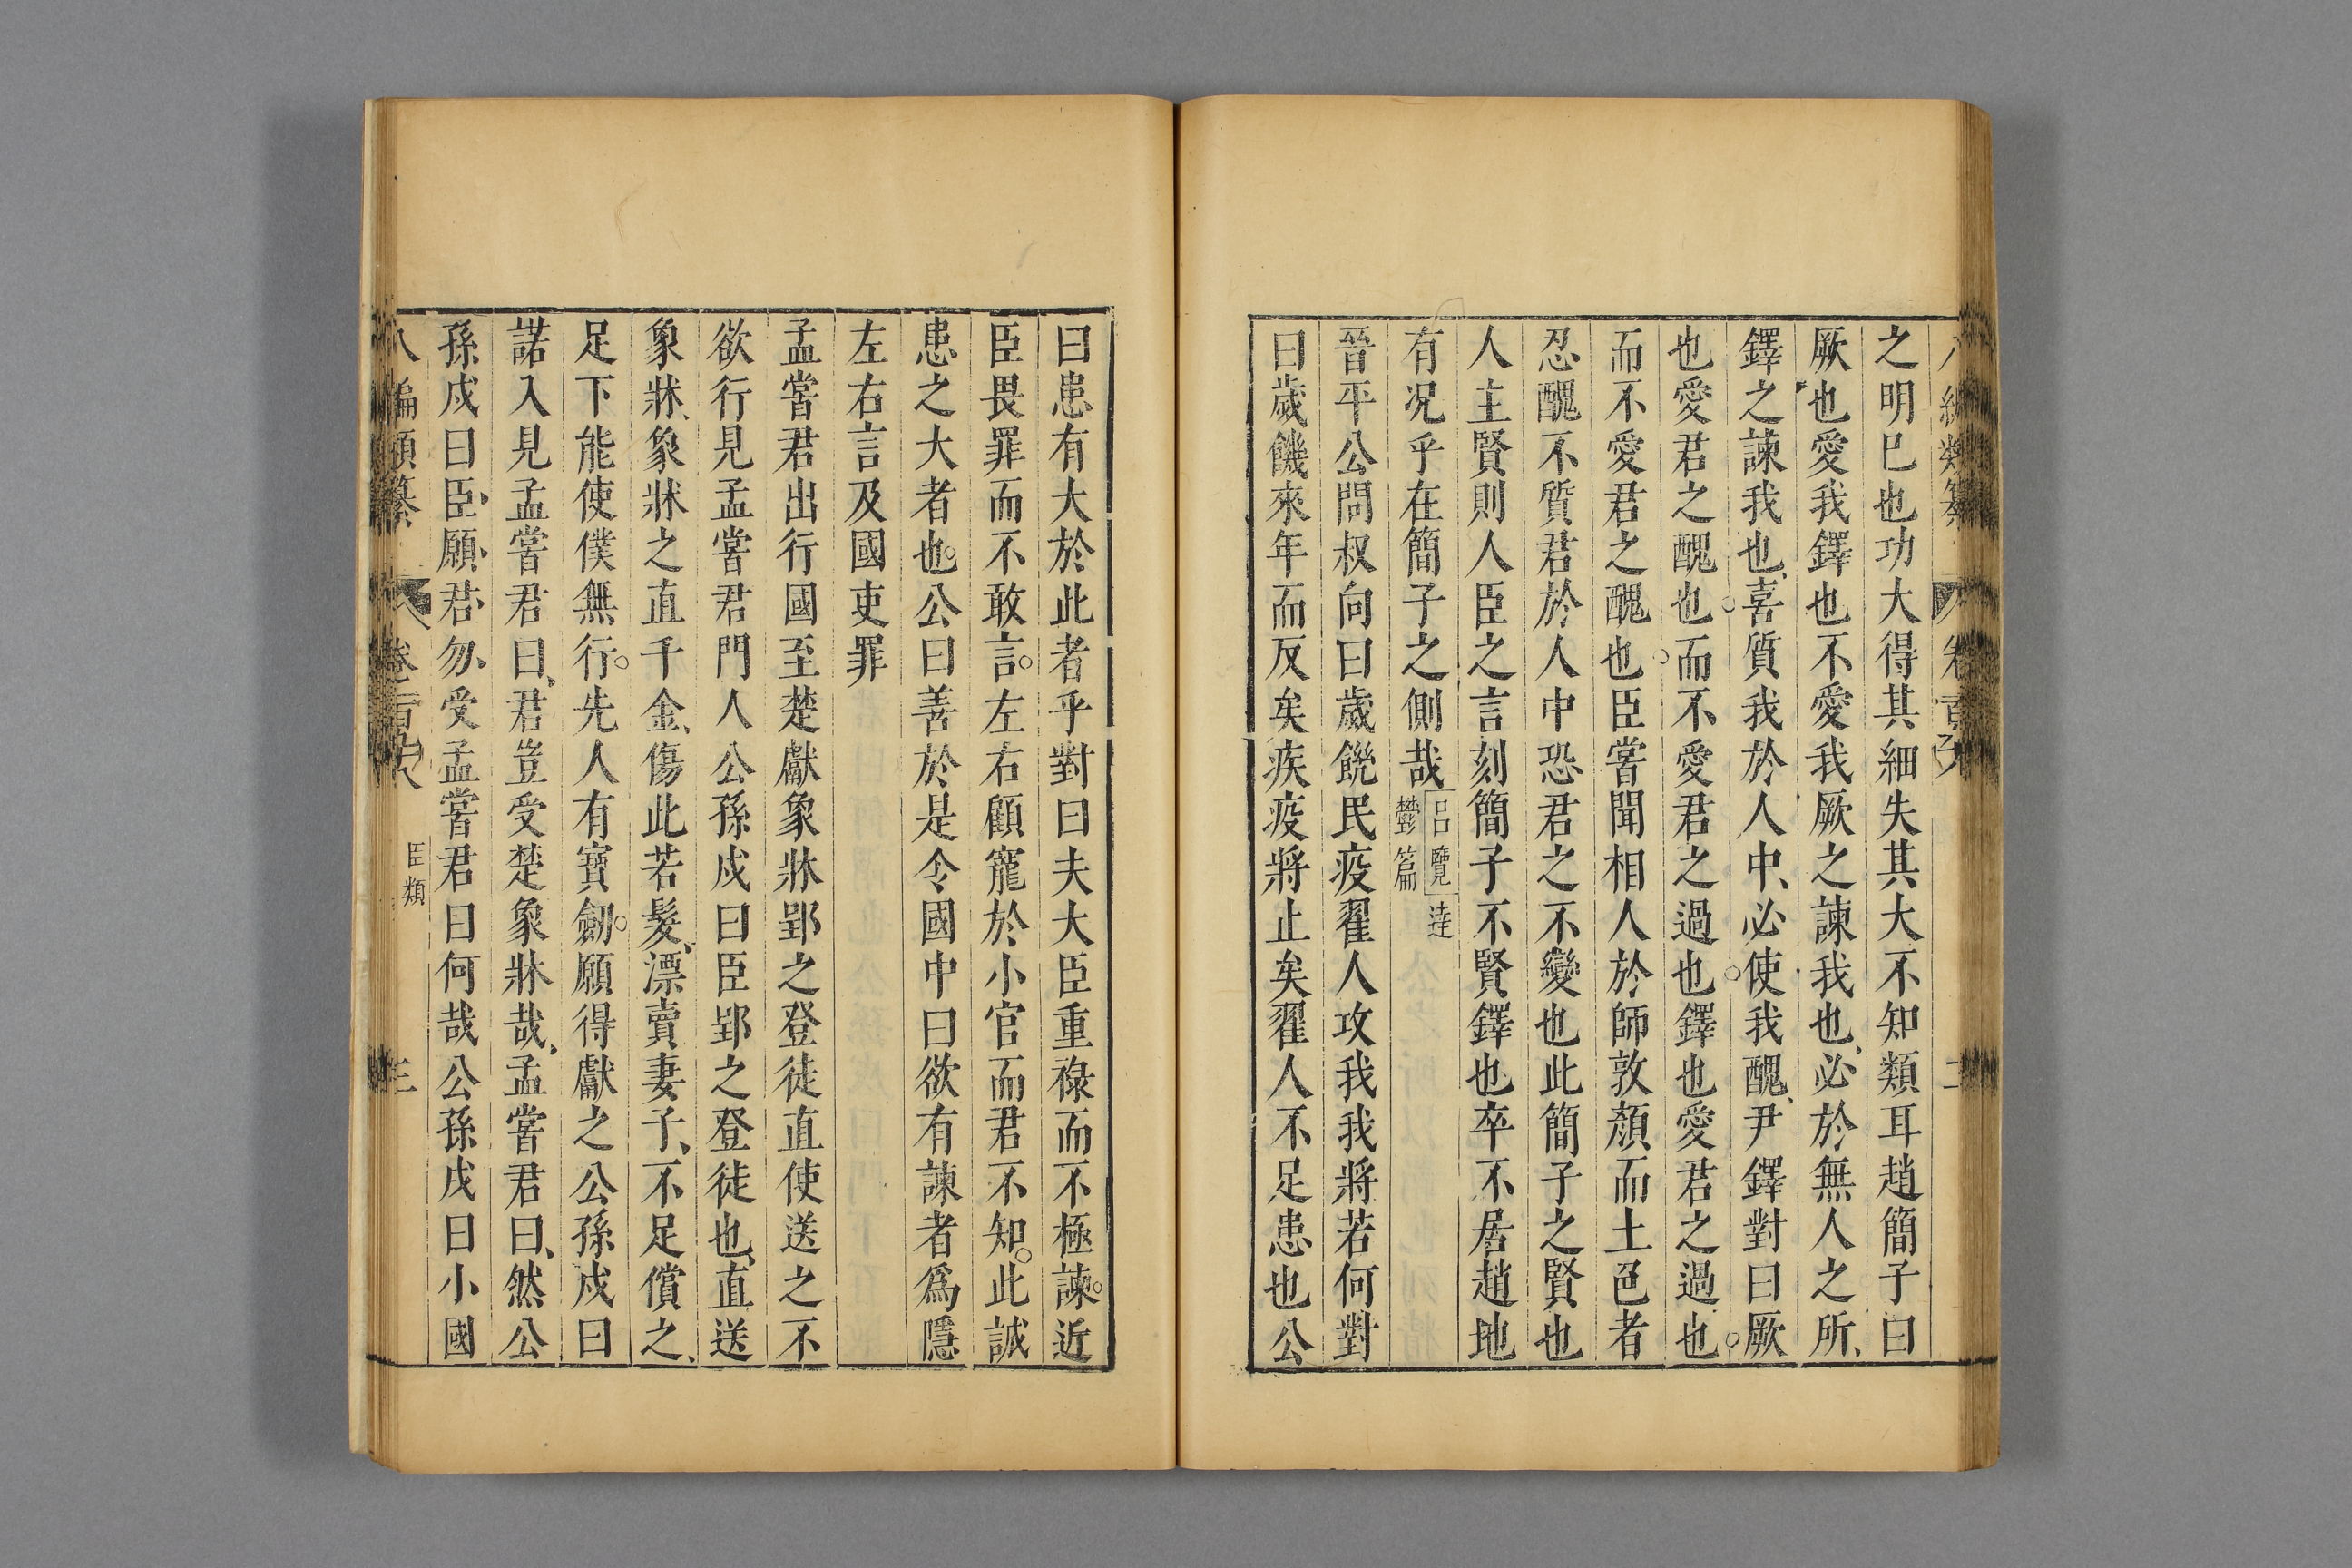 八編類纂 卷百六 二
之明巳也功大得其細失其大不知類耳趙簡子曰
厥也愛我鐸也不愛我厥之諫我也必於無人之所
鐸之諫我也喜質我於人中必使我醜尹鐸對曰厥
也愛君之醜也而不愛君之過也鐸也愛君之過也
而不愛君之醜也臣嘗聞相人於師敦顏而土色者
忍醜不質君於人中恐君之不變也此簡子之賢也
人主賢則人臣之言刻簡子不賢鐸也卒不居趙地
有况乎在簡子之側哉呂覽達
鬱篇
晉平公問叔向曰歲饑民疫翟人攻我我將若何對
曰歲饑來年而反矣疾疫將止矣翟人不足患也公
曰患有大於此者乎對曰夫大臣重祿而不極諫近
臣畏罪而不敢言左右顧寵於小官而君不知此誠
患之大者也公曰善於是令國中曰欲有諫者爲隱
左右言及國吏罪
孟嘗君出行國至楚獻象牀郢之登徒直使送之不
欲行見孟嘗君門人公孫戍曰臣郢之登徒也直送
象牀象牀之直千金傷此若髮漂賣妻子不足償之
足下能使僕無行先人有寶劒願得獻之公孫戍曰
諾入見孟嘗君曰君豈受楚象牀哉孟嘗君曰然公
孫戍曰臣願君勿受孟嘗君曰何哉公孫戍曰小國
八編類纂 卷 臣類 三